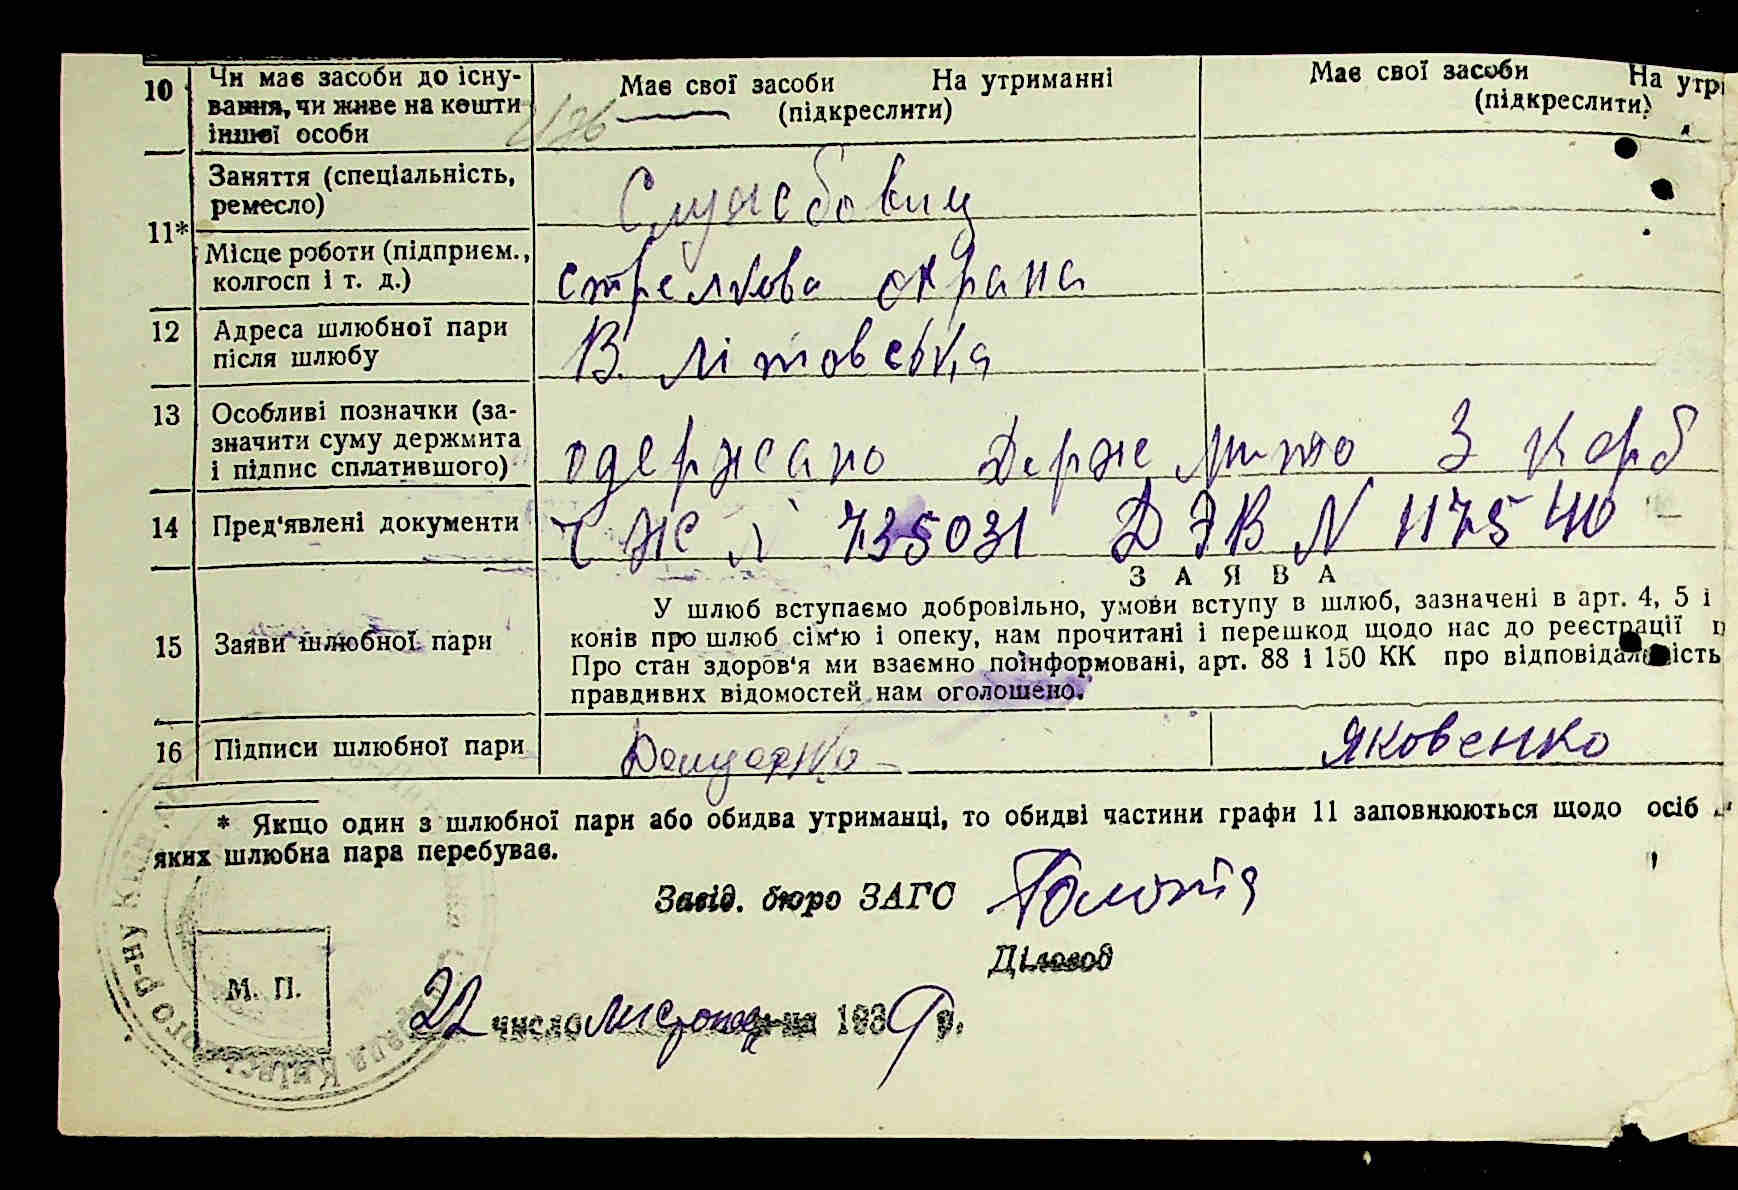 10 Чи має засоби до існу-
вання, чи живе на кошти
іншої особи
Має свої засоби На утриманні
(підкреслити)
Має свої засоби На утри
(підкреслити)
11* Заняття (спеціальність,
ремесло)
Службовиц
Місце роботи (підприєм.,
колгосп і т. д.)
стрелкова охрана
12 Адреса шлюбної пари
після шлюбу
В. Літовська
13 Особливі позначки (за-
значити суму держмита
і підпис сплатившого)
одержано Держ мито 3 карб
14 Пред'явлені документи
735031 ДЭВ N 117540
15 Заяви шлюбної пари
ЗАЯВА
У шлюб вступаємо добровільно, умови вступу в шлюб, зазначені в арт. 4, 5 і
конів про шлюб сім'ю і опеку, нам прочитані і перешкод щодо нас до реєстрації
Про стан здоров'я ми взаємно поінформовані, арт. 88 і 150 КК про відповідальність
правдивих відомостей нам оголошено.
16 Підписи шлюбної пари
Яковенко
* Якщо один з шлюбної пари або обидва утриманці, то обидві частини графи 11 заповнюються щодо осіб
яких шлюбна пара перебуває.
Завід. бюро ЗАГС
Діловод
М. П.
22 число листопада 1939 р.